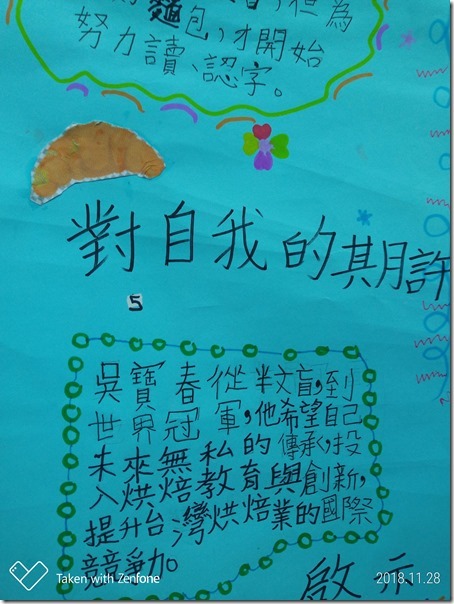 但為
麵包,才開始
努力讀、認字。
對自我的期許
5
吳寶春從半文盲,到
世界冠軍,他希望自己
未來無私的傳承,投
入烘焙教育與創新,
提升台灣烘焙業的國際
競爭力。
啟示
Taken with Zenfone
2018.11.28